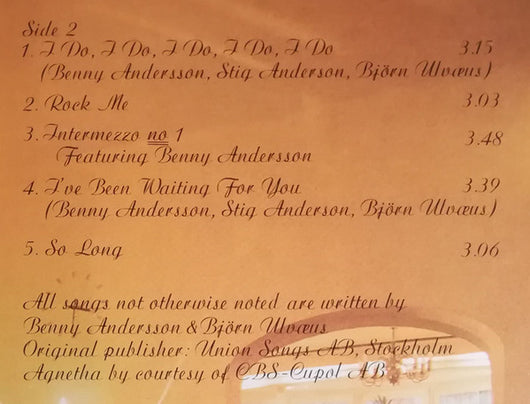 Side 2
1. I Do, I Do, I Do, I Do, I Do 3.15
(Benny Andersson, Stig Anderson, Björn Ulvæus)
2. Rock Me 3.03
3. Intermezzo no 1 3.48
Featuring Benny Andersson
4. I've Been Waiting For You 3.39
(Benny Andersson, Stig Anderson, Björn Ulvæus)
5. So Long 3.06
All songs not otherwise noted are written by
Benny Andersson & Björn Ulvæus
Original publisher: Union Songs AB, Stockholm
Agnetha by courtesy of CBS-Cupol AB